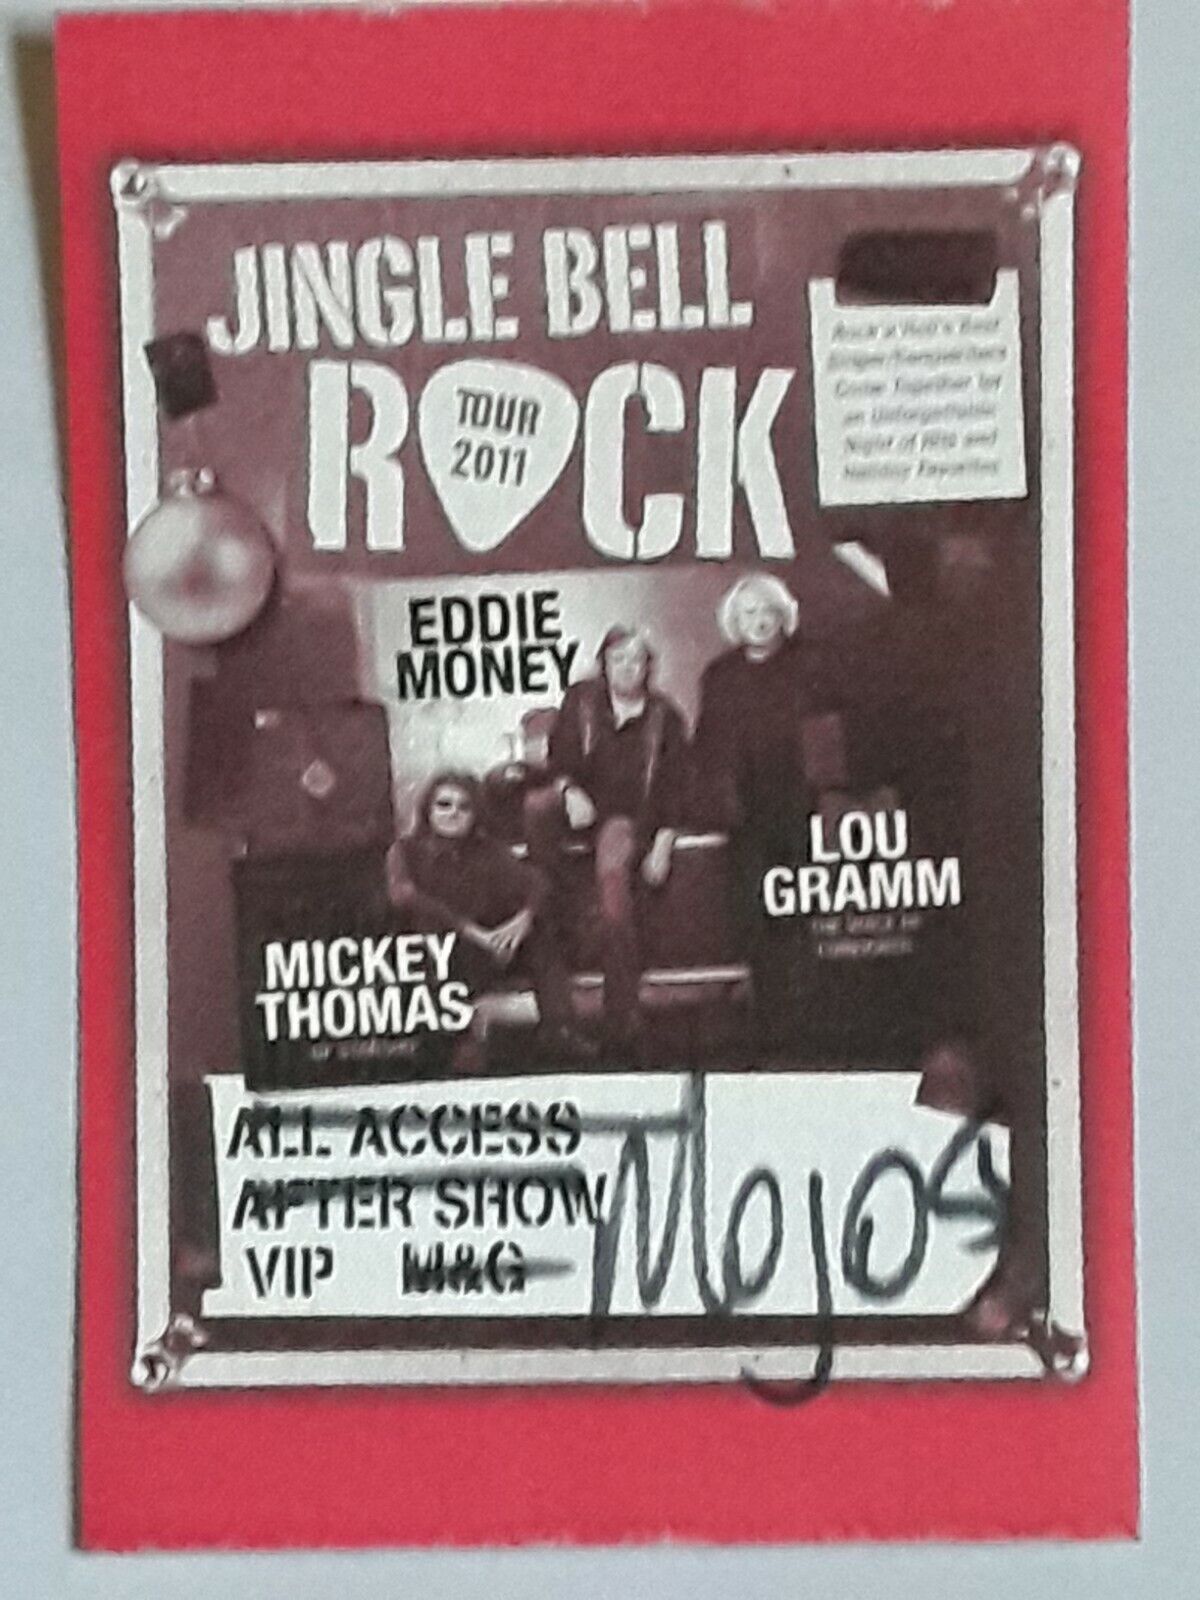 JINGLE BELL
ROCK
TOUR
2011
Rock n Roll's Best
Singer/Songwriters
Come Together by
an Unforgettable
Night of Hits and
Holiday Favorites
EDDIE
MONEY
LOU
GRAMM
THE VOICE OF
FOREIGNER
MICKEY
THOMAS
OF STARSHIP
ALL ACCESS
AFTER SHOW
VIP M&G
Mojo